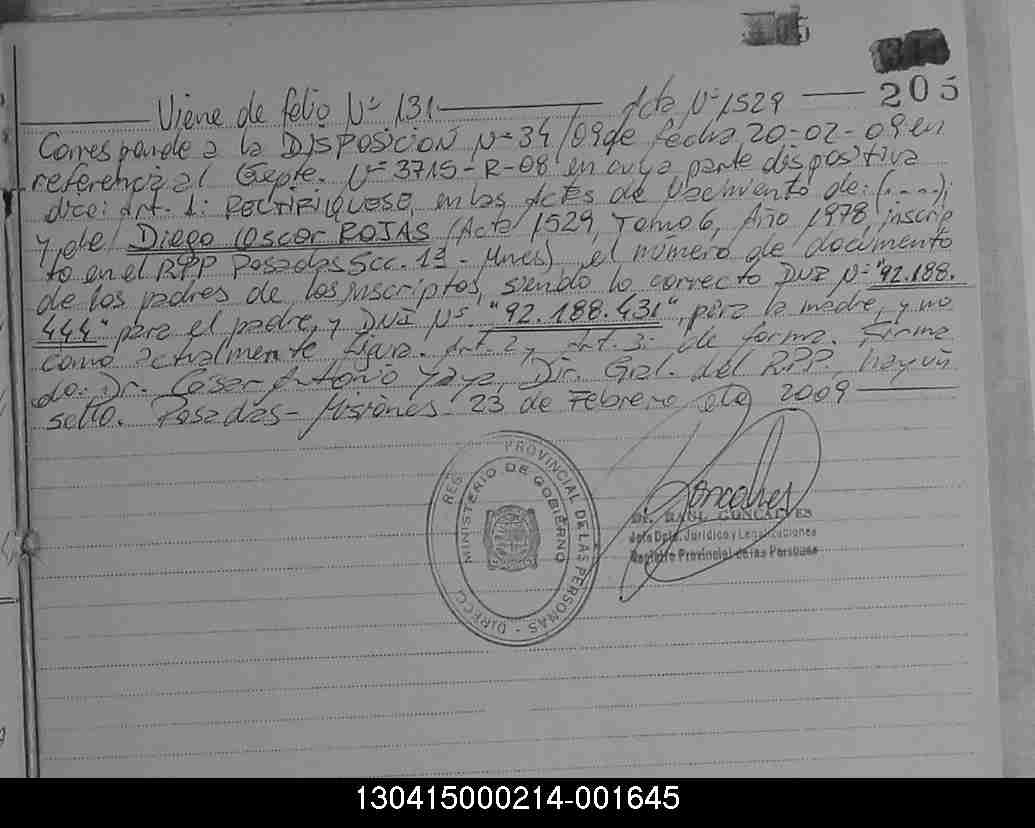 205
Viene de folio Nº 131 Acta Nº 1529
Corresponde a la DISPOSICION Nº 34/09 de fecha 20-02-09 en
referencia al Expte. Nº 3715-R-08 en cuya parte dispositiva
dice: Art. 1: RECTIFIQUESE, en las Actas de Nacimiento de: (....);
y de Diego Oscar ROJAS (Acta 1529, Tomo 6, Año 1978, inscrip
to en el RPP Posadas Scc. 1ª - Mnes) el número de documento
de los padres de los inscriptos, siendo lo correcto DNI Nº "92.188.
444" para el padre, y DNI Nº "92.188.431", para la madre, y no
como actualmente figura. Art. 2 y Art. 3: de forma. Firma
do: Dr. César Antonio Yaya, Dir. Gral. del RPP. hay un
sello. Posadas - Misiones - 23 de Febrero de 2009
REG. PROVINCIAL DE LAS PERSONAS - DIRECC.
MINISTERIO DE GOBIERNO
Goncalves
Dr. RAUL GONCALVES
Jefe Dpto. Jurídico y Legalizaciones
Registro Provincial de las Personas
130415000214-001645